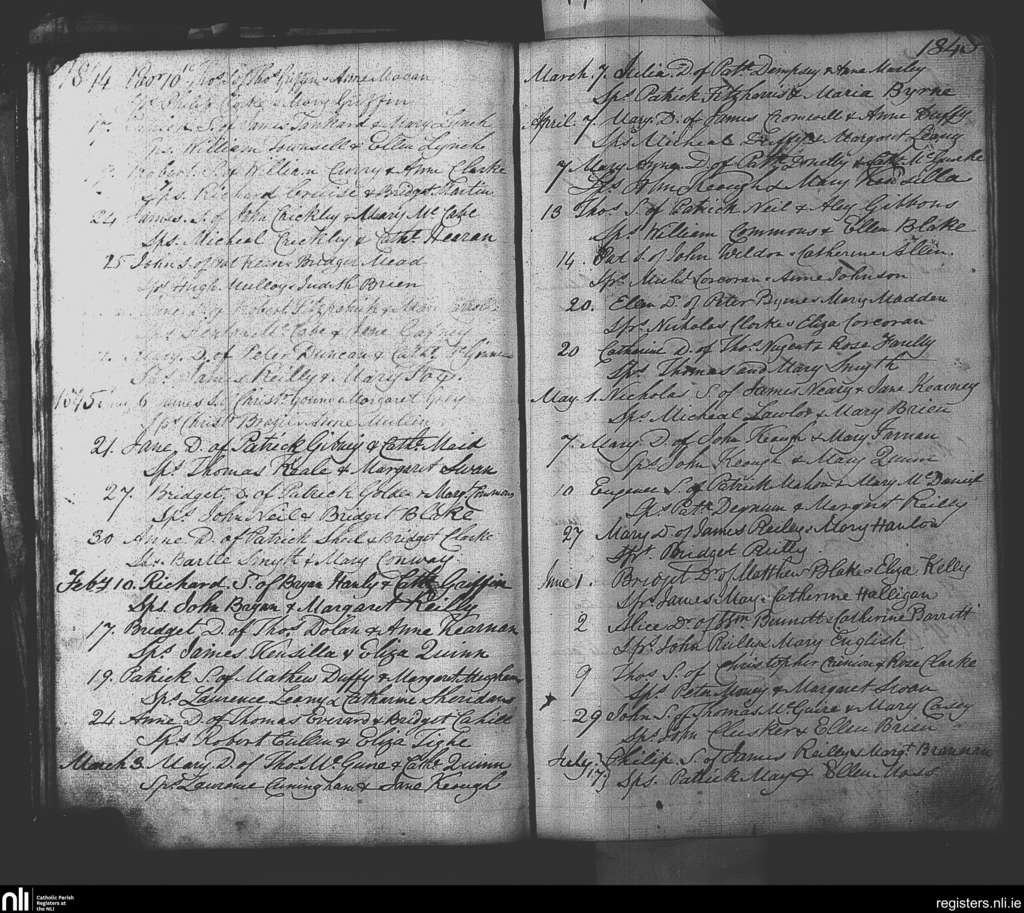 1844
10th Thos. S. of Thos. Griffin & Anne Magan
Sps. Philip Coffe & Mary Griffin
17. S. of James Tankard & Mary Lynch
Sps. William Tounsell & Ellen Lynch
Robert S. of William Curry & Anne Clarke
Sps. Richard Cruise & Bridget Martin
24 James. S. of John Crickley & Mary Mc Cabe
Sps. Micheal Crickley & Cathe. Hearan
25 John S. of Bridget Mead
Sps. Hugh Mulloy & Judith Brien
D. of Robert Fitzpatrick &
Mc Cabe & Jane Cagney
Mary. D. of Peter Duncan & Cathe.
Sps. James Reilly & Mary Foy.
1845. 6 James S. of Christr. & Margaret
Sps. Christr. & Anne Mullen
21. Jane, D. of Patrick Givney & Cathe. Maid
Sps. Thomas Keale & Margaret Swan
27. Bridget, D. of Patrick Golden & Mary
Sps. John Neil & Bridget Blake
30 Anne D. of Patrick Shiel & Bridget Clarke
Sps. Bartle Smyth & Mary Conway
Feby 10. Richard S. of Bryan Hanly & Cathe. Griffin
Sps. John Bryan & Margaret Reilly
17. Bridget D. of Thos. Dolan & Anne Kearnan
Sps. James Kensilla & Eliza Quinn
19. Patrick S. of Mathew Duffy & Margaret
Sps. Laurence Leany & Catharine Sheridan
24 Anne D. of Thomas Everard & Bridget Cahill
Sps. Robert Cullen & Eliza Tighe
March 3. Mary. D. of Thos. Mc Guire & Cathe. Quinn
Sps. Laurence Cuningham & Jane Keough
1845
March 7. Julia D. of Patk. Dempsey & Anne Masley
Sps. Patrick Fitzharris & Maria Byrne
April. 7 Mary. D. of James Cromwell & Anne Duffy
Sps. Micheal Duffy & Margaret Leany
7 Mary Agnes D. of Donelly & Cathe. Mc Guirke
Sps. Wm. Keough & Mary Kinsilla
13 Thos. S. of Patrick Neil & Aley Gibbons
Sps. William Commons & Ellen Blake
14. Pat S. of John Weldon & Catherine Allen.
Sps. Michl. Corcoran & Anne Johnson
20. Ellen D. of Peter Byrne & Mary Madden
Sps. Nicholas Clarke & Eliza Corcoran
20 Catharine D. of Thos. Nugent & Rose Faully
Sps. Thomas and Mary Smyth
May 1. Nicholas S. of James Nealy & Jane Kearney
Sps. Micheal Lawlor & Mary Brien
7. Mary. D. of John Keough & Mary Farnan
Sps. John Keough & Mary Quinn
10 Eugene S. of Patrick Mahon & Mary Mc Daniel
Sps. Patk. Degnum & Margret Reilly
27 Mary D. of James Reilly & Mary Hanlon
Spt. Bridget Reilly
June 1. Bridget Dr. of Matthew Blake & Eliza Kelly
Spr. James May & Catherine Halligan
2 Alice Dr. of Wm. Burnett & Catherine Barritt
Spr. John Reilly & Mary English
9 Thos. S. of Christopher & Rose Clarke
Sps. Peter Mooney & Margaret Swan
29 John S. of Thomas Mc Guire & Mary Casey
Sps. John Clusker & Ellen Brien
July. Philip. S. of James Reilly & Margt. Brannan
17 Sps. Patrick May & Ellen Moss
nli Catholic Parish
Registers at
the NLI
registers.nli.ie